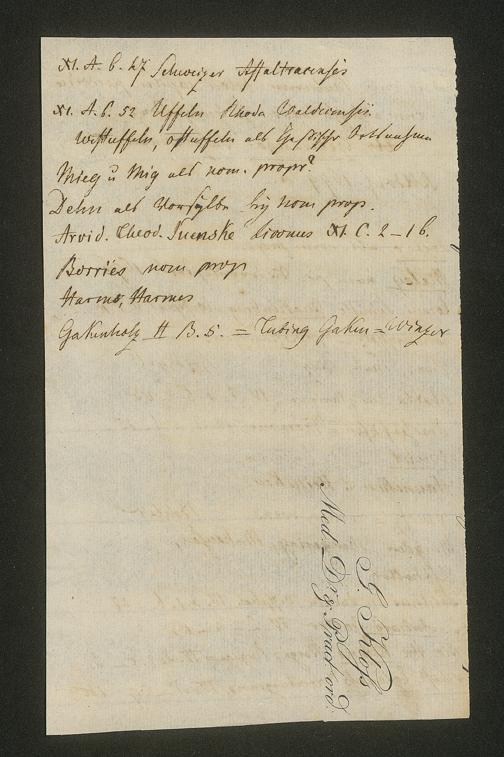 XI. A. b. 27 Schweizer Affaltracensis
XI. A. b. 52 Uffeln Rhoda Waldecensis.
Westuffeln, Ostuffeln als Hessischer Ortsnahmen
Mieg u Mig als nom. propr?
Dehn als Vorsylbe bij nom prop.
Arvid. Theod. Suenske Livonus XI C. 2-16.
Borries nom prop
Harms, Harmes
Gakenholz II B. 5. = Tubing Gaken = Winzer
G. Kloß
Med. Dr. & Pract. ord.